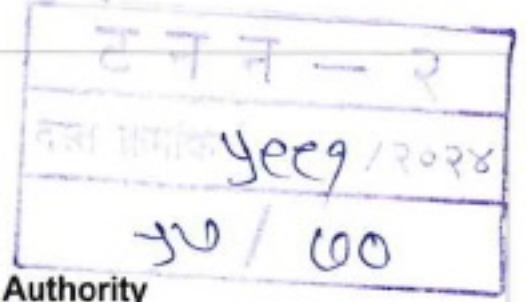 ट न न — २
दस्त क्रमांक ५९९१ / २०२४
५७ / ७०
Authority